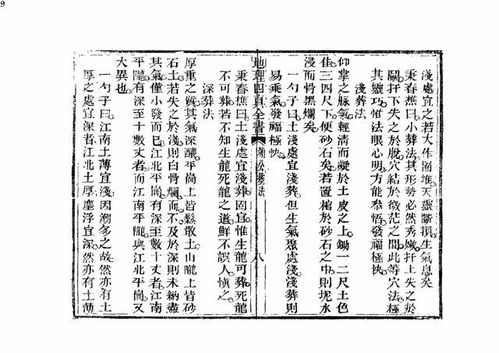 9
淺處宜之若大作堆天靈斷損生氣息矣
秉春樵曰小葬法其形勢必然秀嫩扦上失之於
鬬扦下失之於脫穴結於微茫之間此等穴法極
其靈巧惟法眼心明方能叅悟發福極快
淺葬法
仰掌之脉氣輕清而凝於土皮之上鋤一二尺土色
佳三四尺下便砂石矣若置棺於砂石之中則坭水
浸而骨黑爛矣
一勺子曰土淺處宜淺葬但生氣聚處淺淺葬則
易乘氣發福極快
地理四真全書 葬法 八
秉春樵曰土淺處宜淺葬固宜惟生龍可葬死龍
不可葬若不知生龍死龍之道鮮不誤人慎之
深葬法
厚重之質其氣深藏平崗上皆鬆散土山隴上皆砂
石土若失之於淺則白骨爛而不及於深則未納盡
其氣僅小發而已江北平崗有深至十數丈者江南
平隴有深至十數丈者而江南平隴與江北平崗又
大異也
一勺子曰江南土薄宜淺因潮多之故然亦有土
厚之處宜深者江北土厚塵浮宜深然亦有土薄